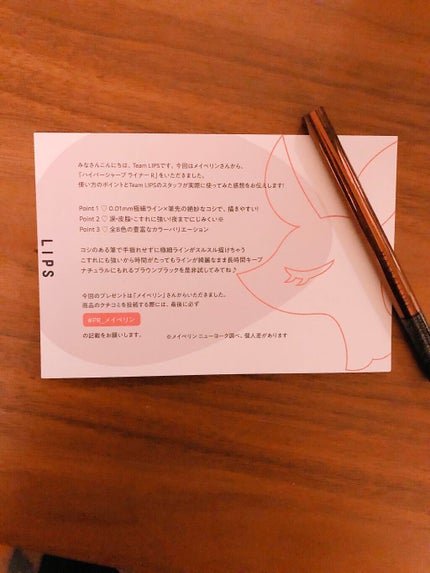 みなさんこんにちは、Team LIPSです。今回はメイベリンさんから、
「ハイパーシャープ ライナー R」をいただきました。
使い方のポイントとTeam LIPSのスタッフが実際に使ってみた感想をお伝えします!
Point 1 ♡ 0.01mm極細ライン×筆先の絶妙なコシで、描きやすい!
Point 2 ♡ 涙・皮脂・こすれに強い!夜までにじみくい※
Point 3 ♡ 全8色の豊富なカラーバリエーション
コシのある筆で手振れせずに極細ラインがスルスル描けちゃう
こすれにも強いから時間がたってもラインが綺麗なまま長時間キープ
ナチュラルにもれるブラウンブラックを是非試してみてね♪
今回のプレゼントは「メイベリン」さんからいただきました。
商品のクチコミを投稿する際には、最後に必ず
#PR_メイベリン
の記載をお願いします。
※メイベリン ニューヨーク調べ、個人差があります
LIPS